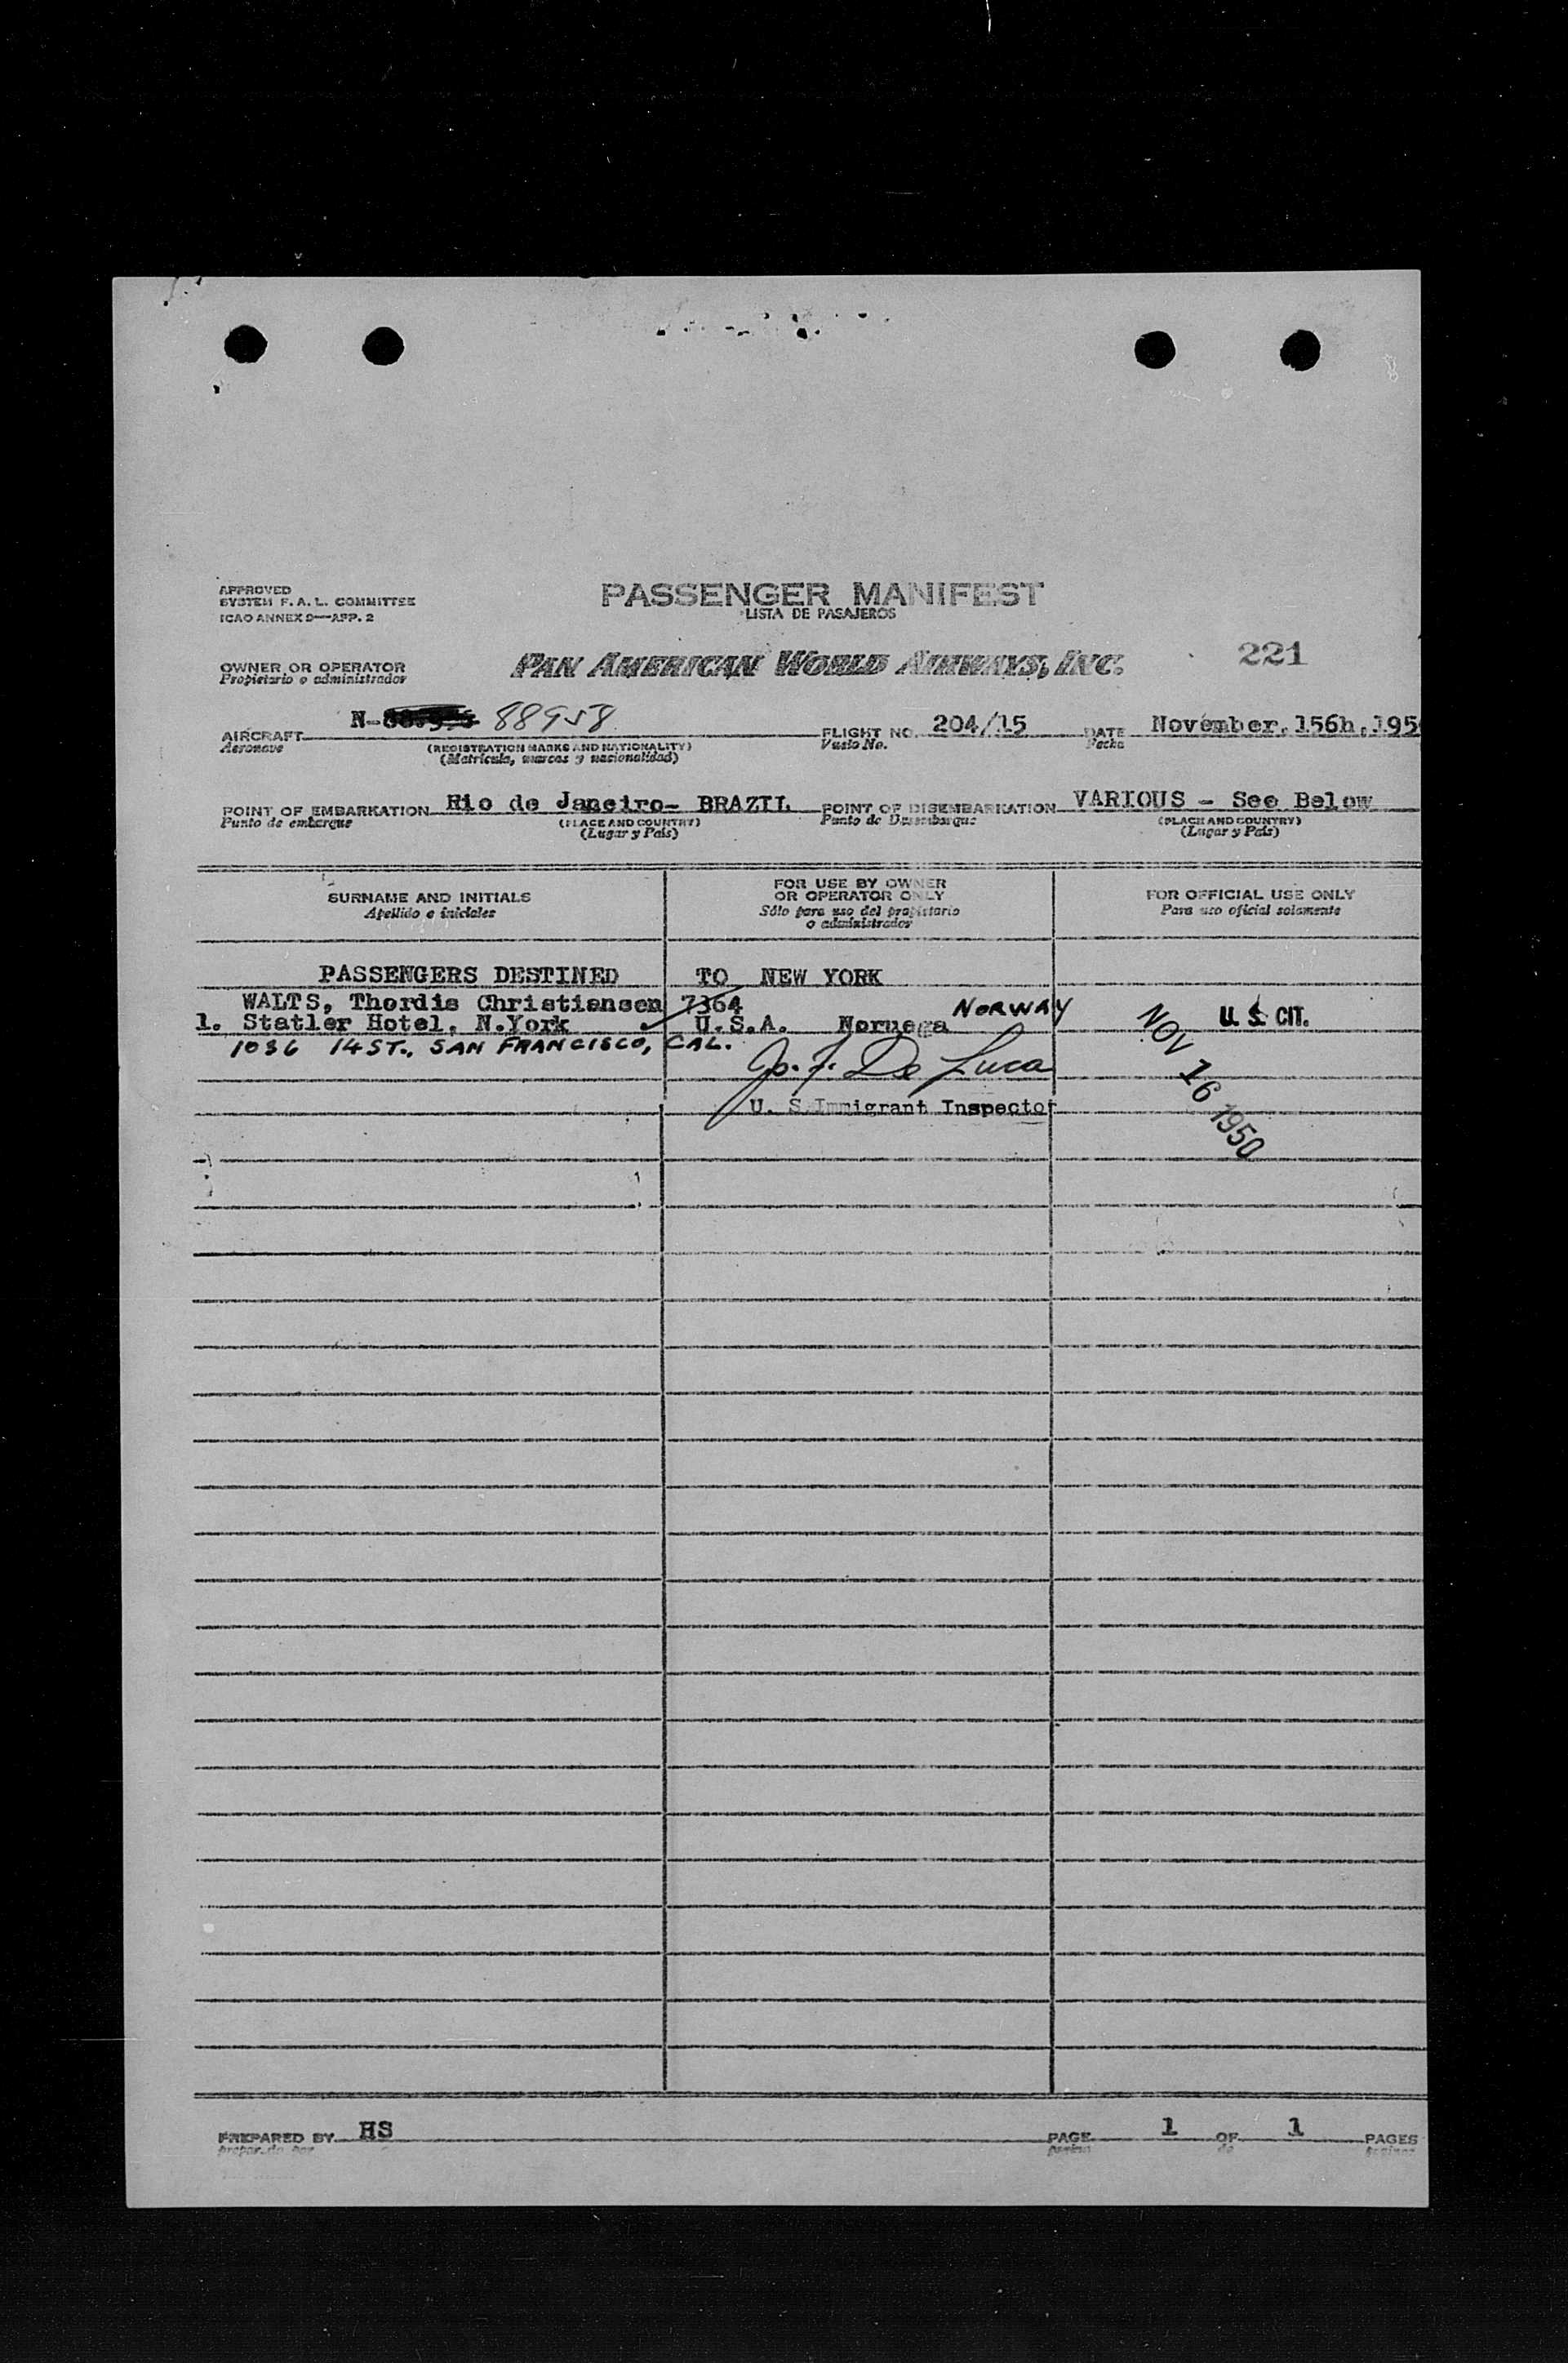 APPROVED
SYSTEM F. A. L. COMMITTEE
ICAO ANNEX 9—APP. 2
PASSENGER MANIFEST
LISTA DE PASAJEROS
OWNER OR OPERATOR
Propietario o administrador
PAN AMERICAN WORLD AIRWAYS, INC.
221
AIRCRAFT N- 88958
Aeronave
(REGISTRATION MARKS AND NATIONALITY)
(Matrícula, marcas y nacionalidad)
FLIGHT NO. 204/15
Vuelo No.
DATE November, 156h, 195
Fecha
POINT OF EMBARKATION Rio de Janeiro- BRAZIL
Punto de embarque
(PLACE AND COUNTRY)
(Lugar y País)
POINT OF DISEMBARKATION VARIOUS - See Below
Punto de Desembarque
(PLACE AND COUNTRY)
(Lugar y País)
SURNAME AND INITIALS
Apellido e iniciales
FOR USE BY OWNER
OR OPERATOR ONLY
Sólo para uso del propietario
o administrador
FOR OFFICIAL USE ONLY
Para uso oficial solamente
PASSENGERS DESTINED TO NEW YORK
WALTS, Thordis Christiansen 7364 NORWAY
1. Statler Hotel, N.York U.S.A. Noruega U. S. CIT.
1036 14 ST., SAN FRANCISCO, CAL.
Jo. F. De Luca
U. S. Immigrant Inspector
NOV 16 1950
PREPARED BY HS
PAGE 1 OF 1 PAGES